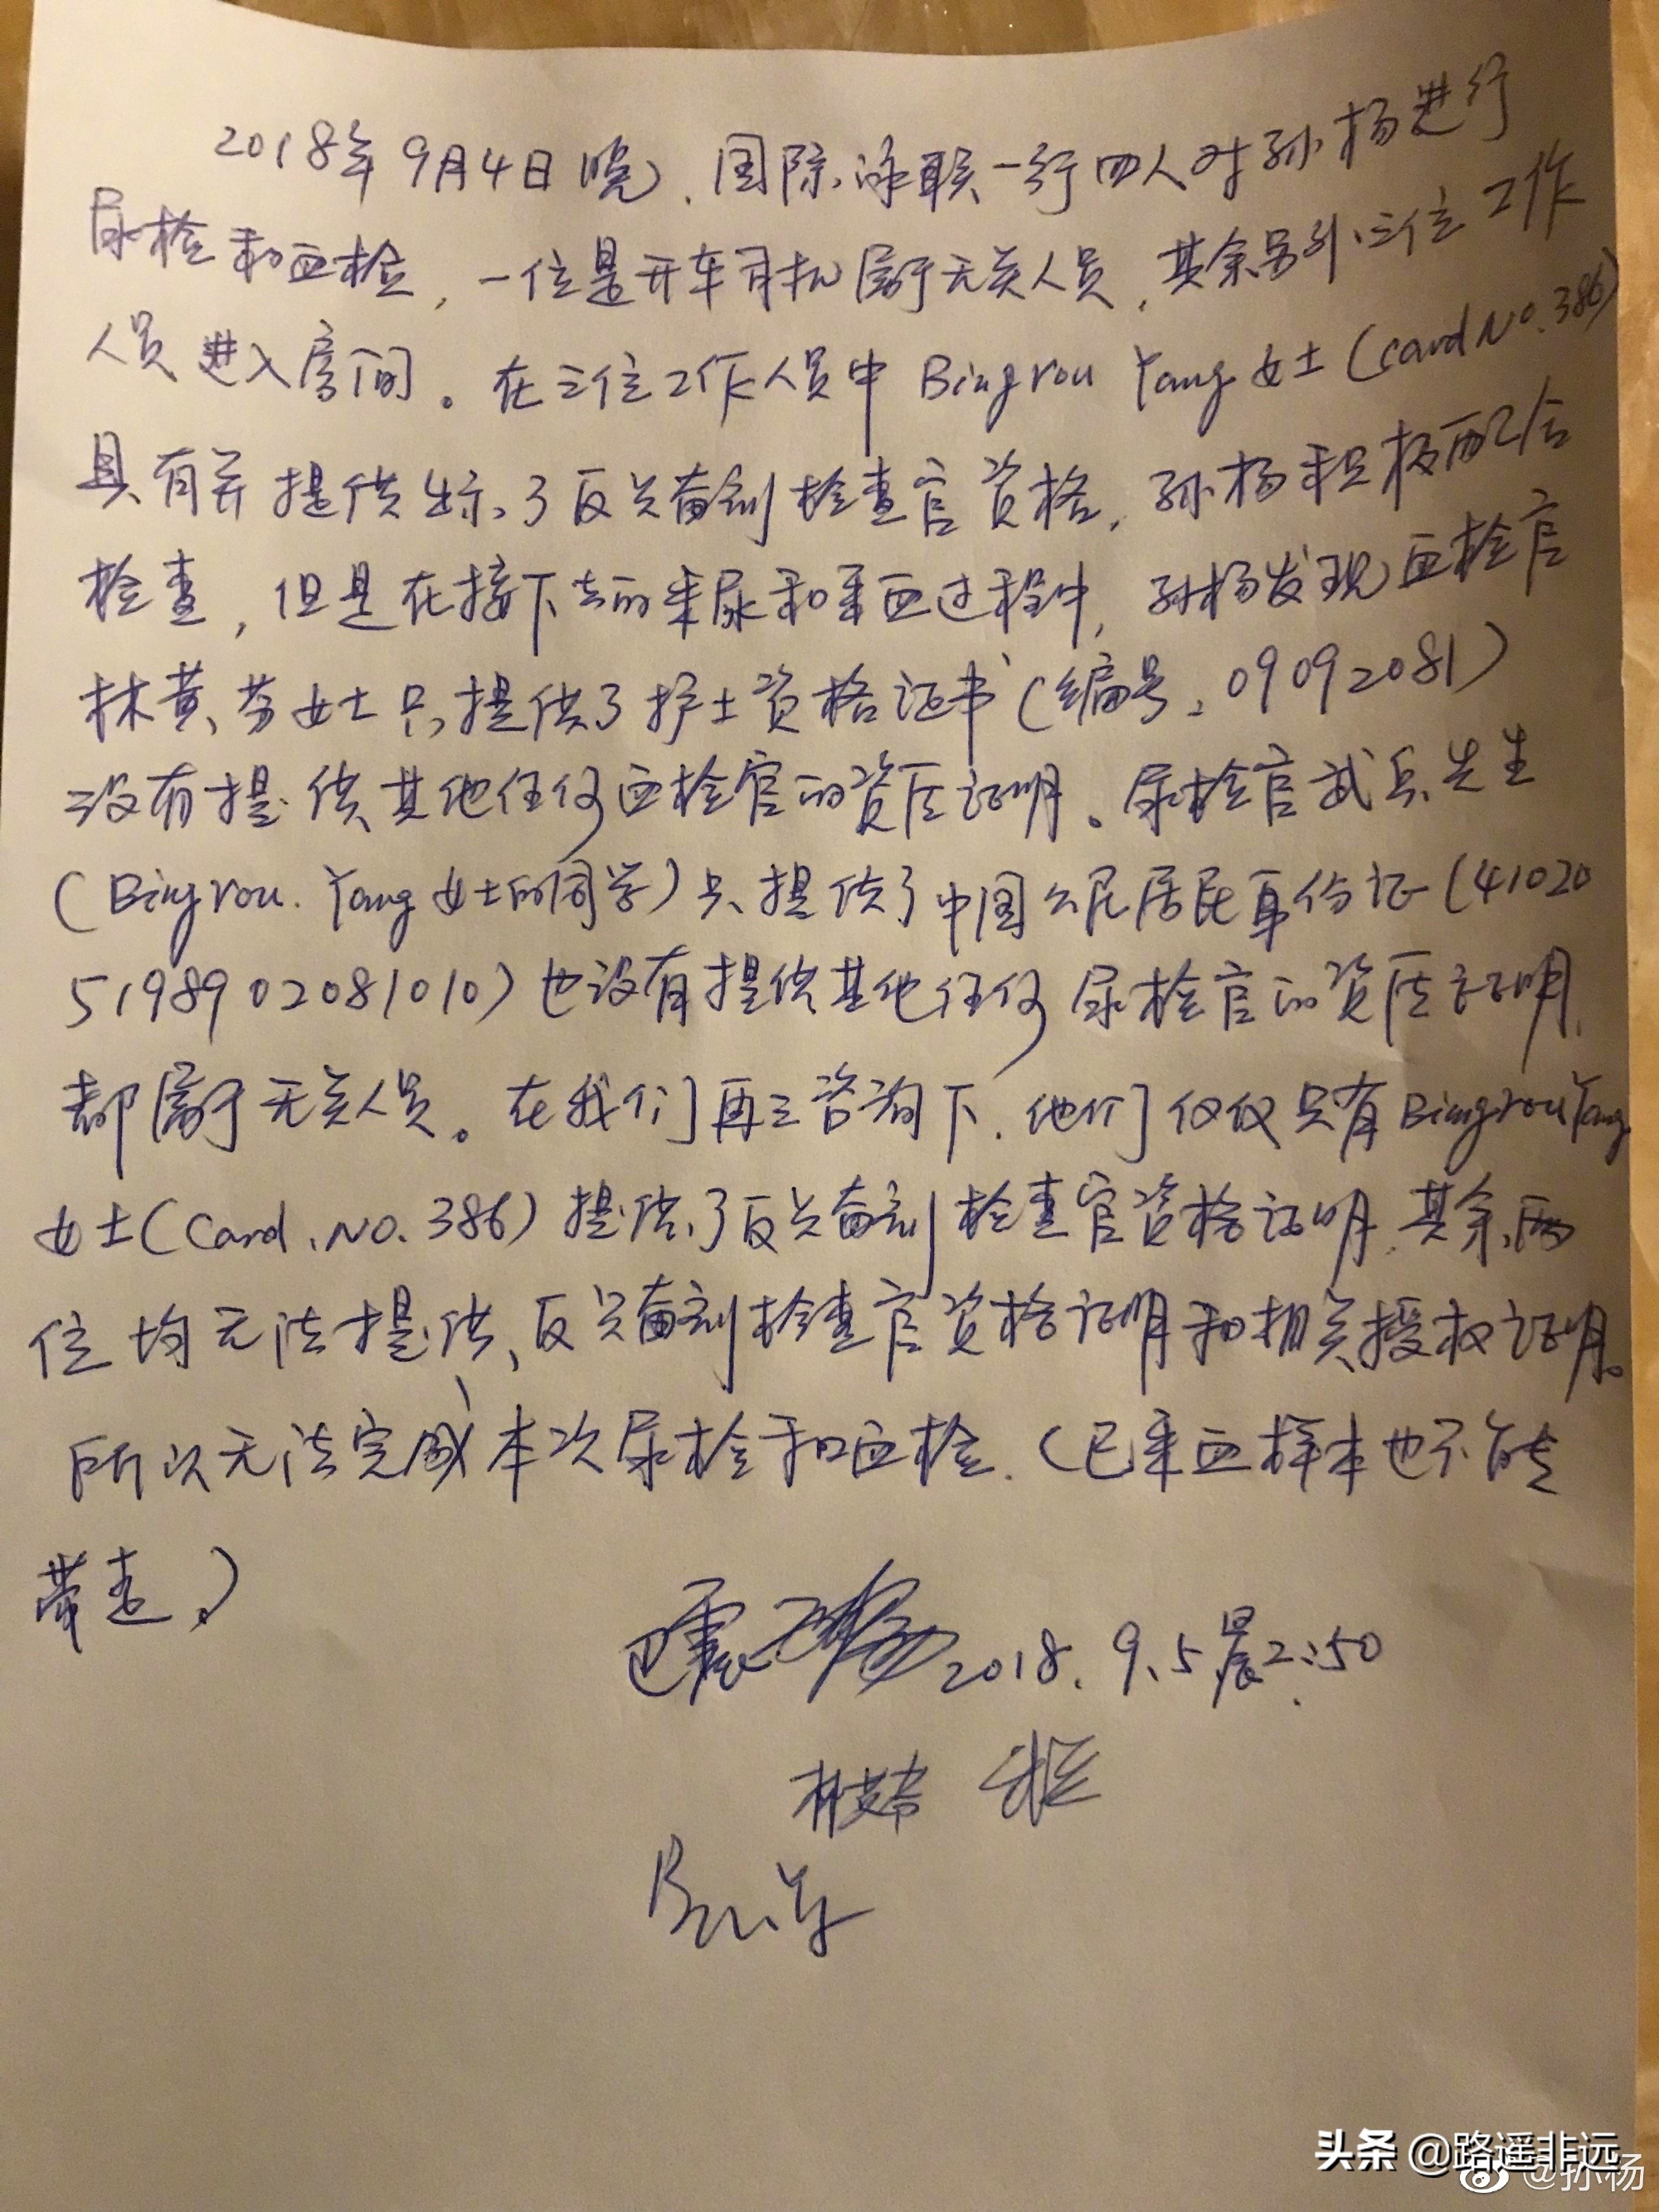 2018年9月4日晚、国际泳联一行四人对孙杨进行
尿检和血检，一位是开车司机属于无关人员，其余另外三位工作
人员进入房间。在三位工作人员中 Bingrou Yang 女士（Card No.386）
具有并提供出示了反兴奋剂检查官资格，孙杨积极配合
检查，但是在接下去的采尿和采血过程中，孙杨发现血检官
林黄芬女士只提供了护士资格证书（编号：09092081）
没有提供其他任何血检官的资质证明。尿检官武兵先生
（Bingrou. Yang女士的同学）只提供了中国公民居民身份证（41020
5198902081010）也没有提供其他任何尿检官的资质证明，
都属于无关人员。在我们再三咨询下，他们仅仅只有Bingrou Yang
女士（Card.No.386）提供了反兴奋剂检查官资格证明，其余两
位均无法提供反兴奋剂检查官资格证明和相关授权证明。
所以无法完成本次尿检和血检.（已采血样本也不能
带走。）
2018.9.5晨2:50
头条 @路遥非远
@孙杨